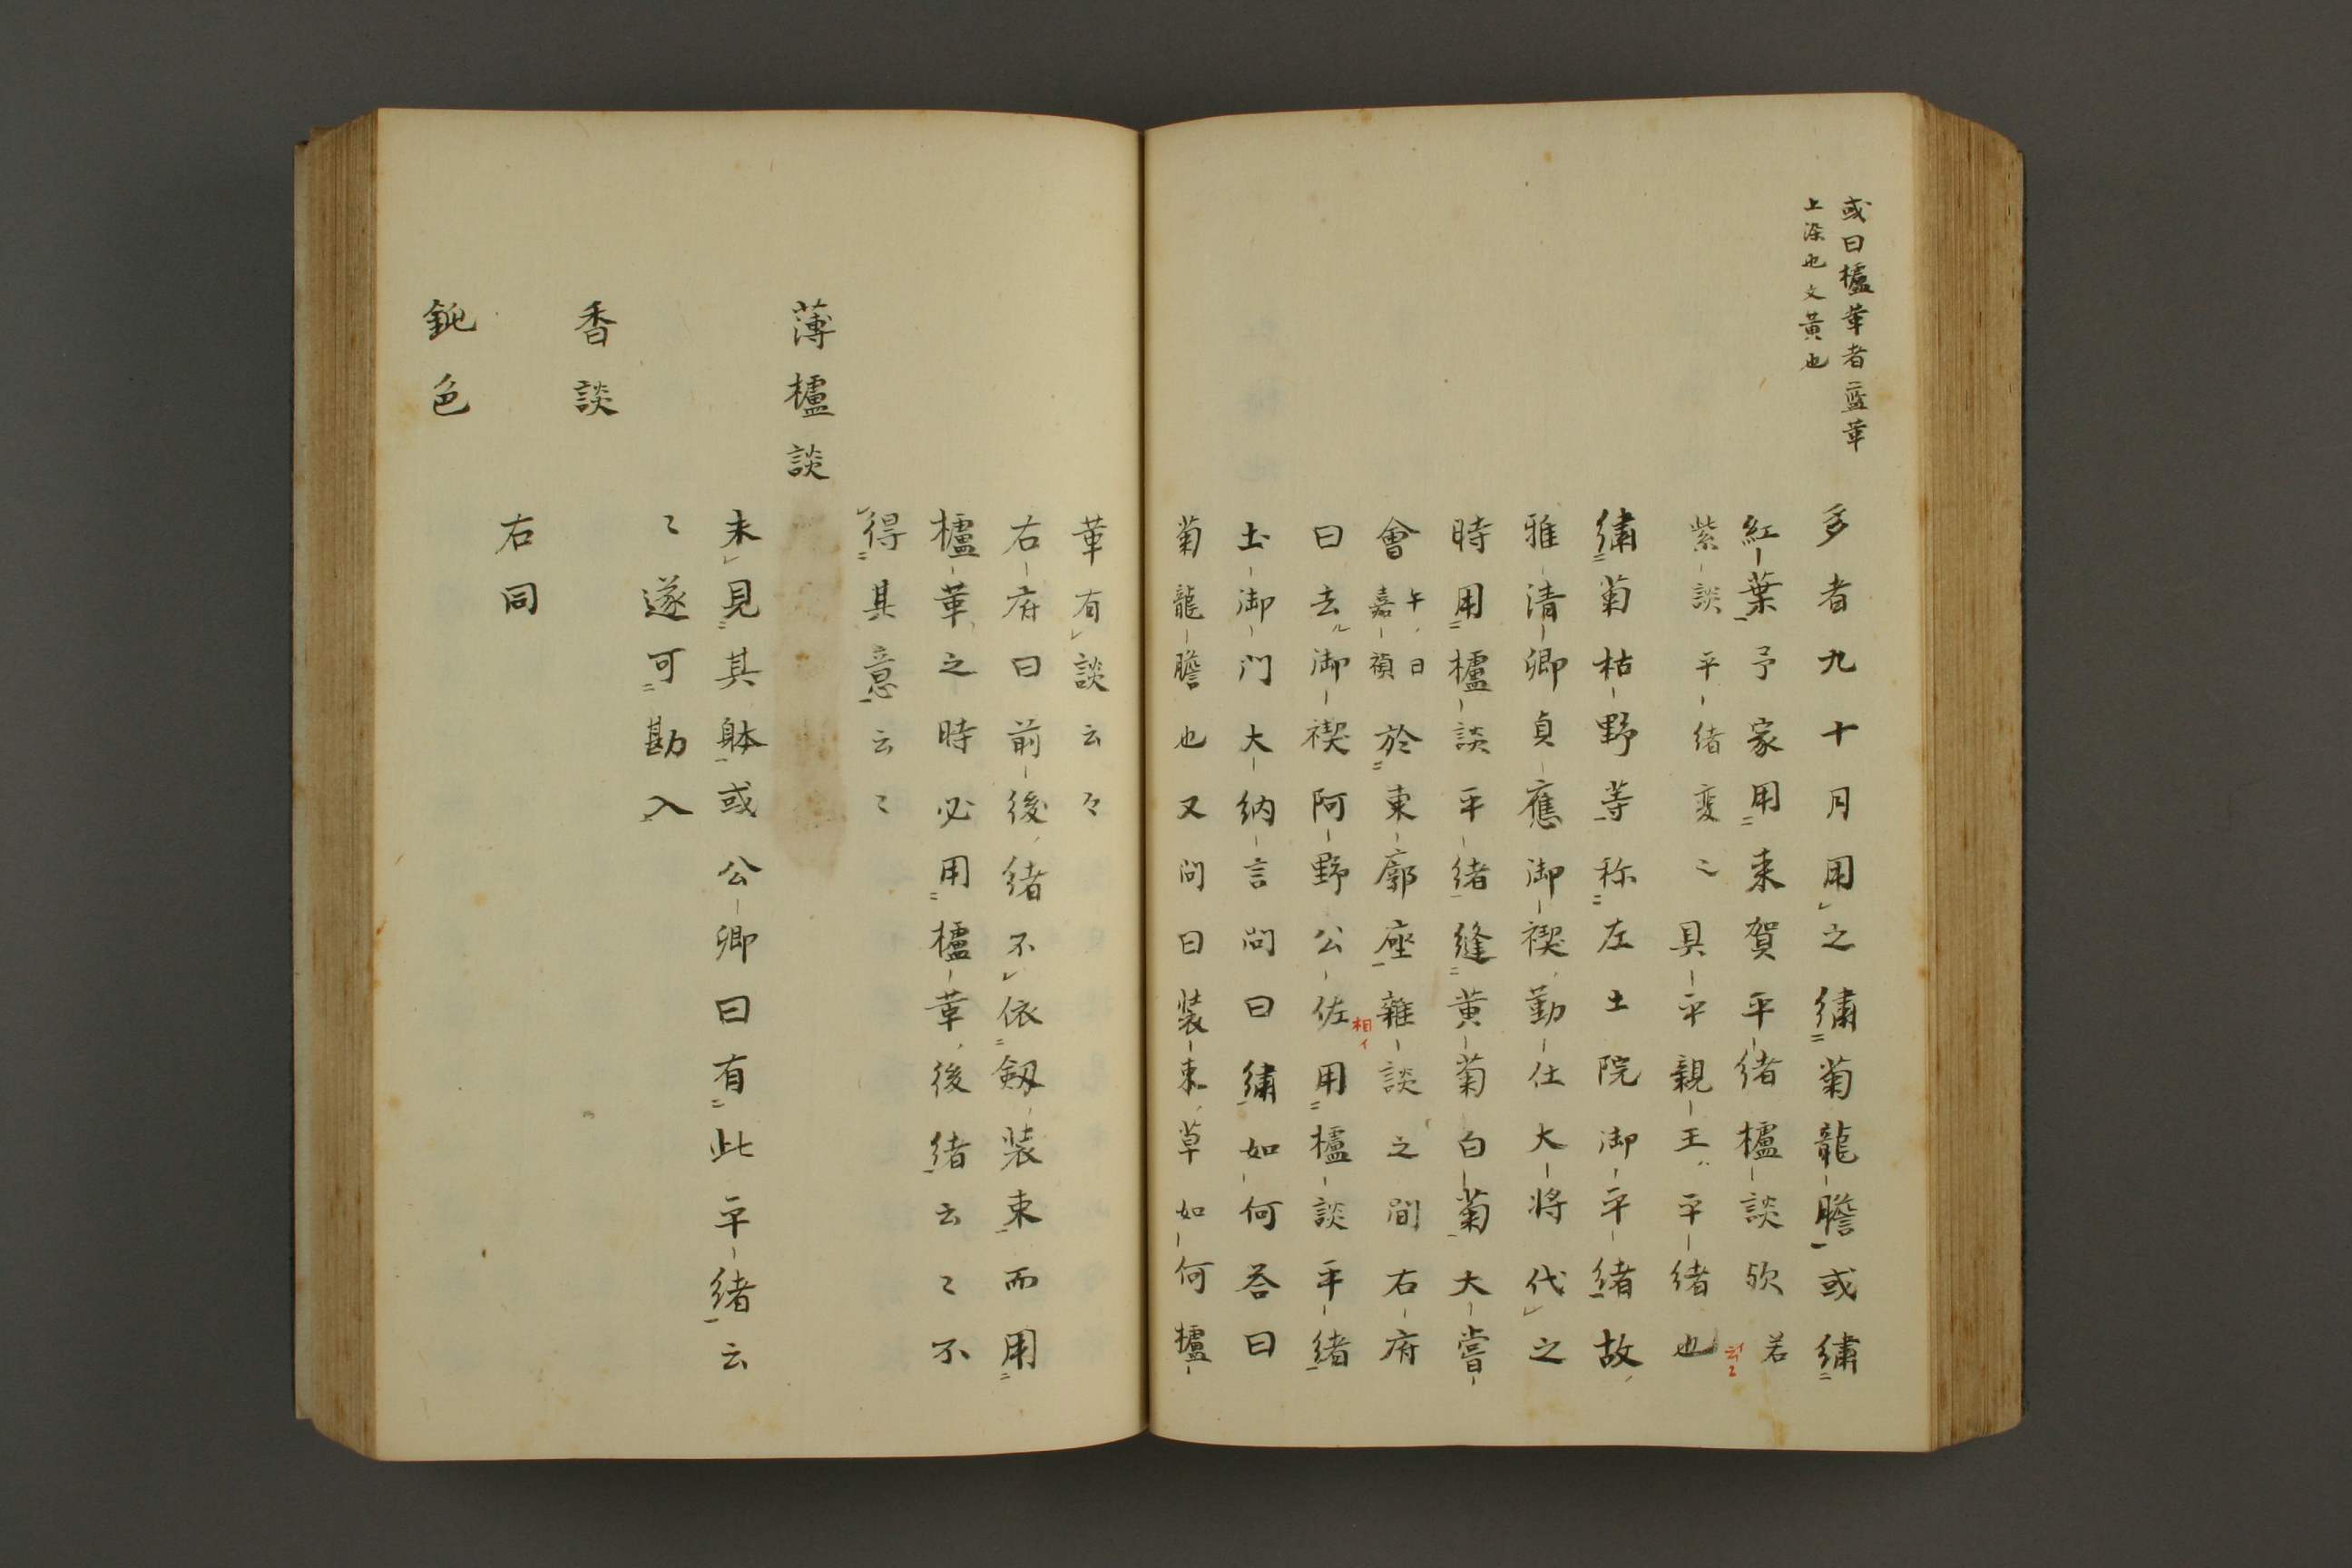 或曰櫨革者藍革
上染也文黄也
多者九十月用之繍菊龍膽或繍
紅葉予家用来賀平緒櫨談欤若
紫談平緒変之具平親王平緒也
繍菊枯野等称左土院御平緒故
雅清卿貞應御禊勤仕大将代之
時用櫨談平緒縫黄菊白菊大嘗
會午日嘉禎於東廓座雜談之間右府
曰去御禊阿野公佐相イ用櫨談平緒
土御门大納言問曰繍如何答曰
菊龍膽也又問曰装束草如何櫨
革有談云々
右府曰前後緒不依劔装束而用
櫨革之時必用櫨革後緒云々不
得其意云々
薄櫨談
未見其躰或公卿曰有此平緒云
々遂可勘入
香談
右同
鈍色